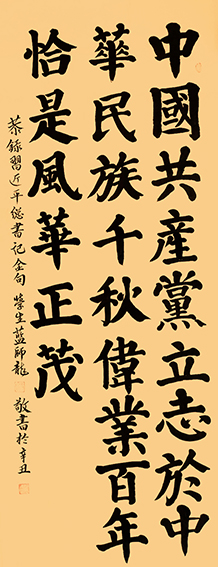 中國共產黨立志於中
華民族千秋偉業百年
恰是風華正茂
恭錄習近平總書記金句 榮生藍師龍 敬書於辛丑